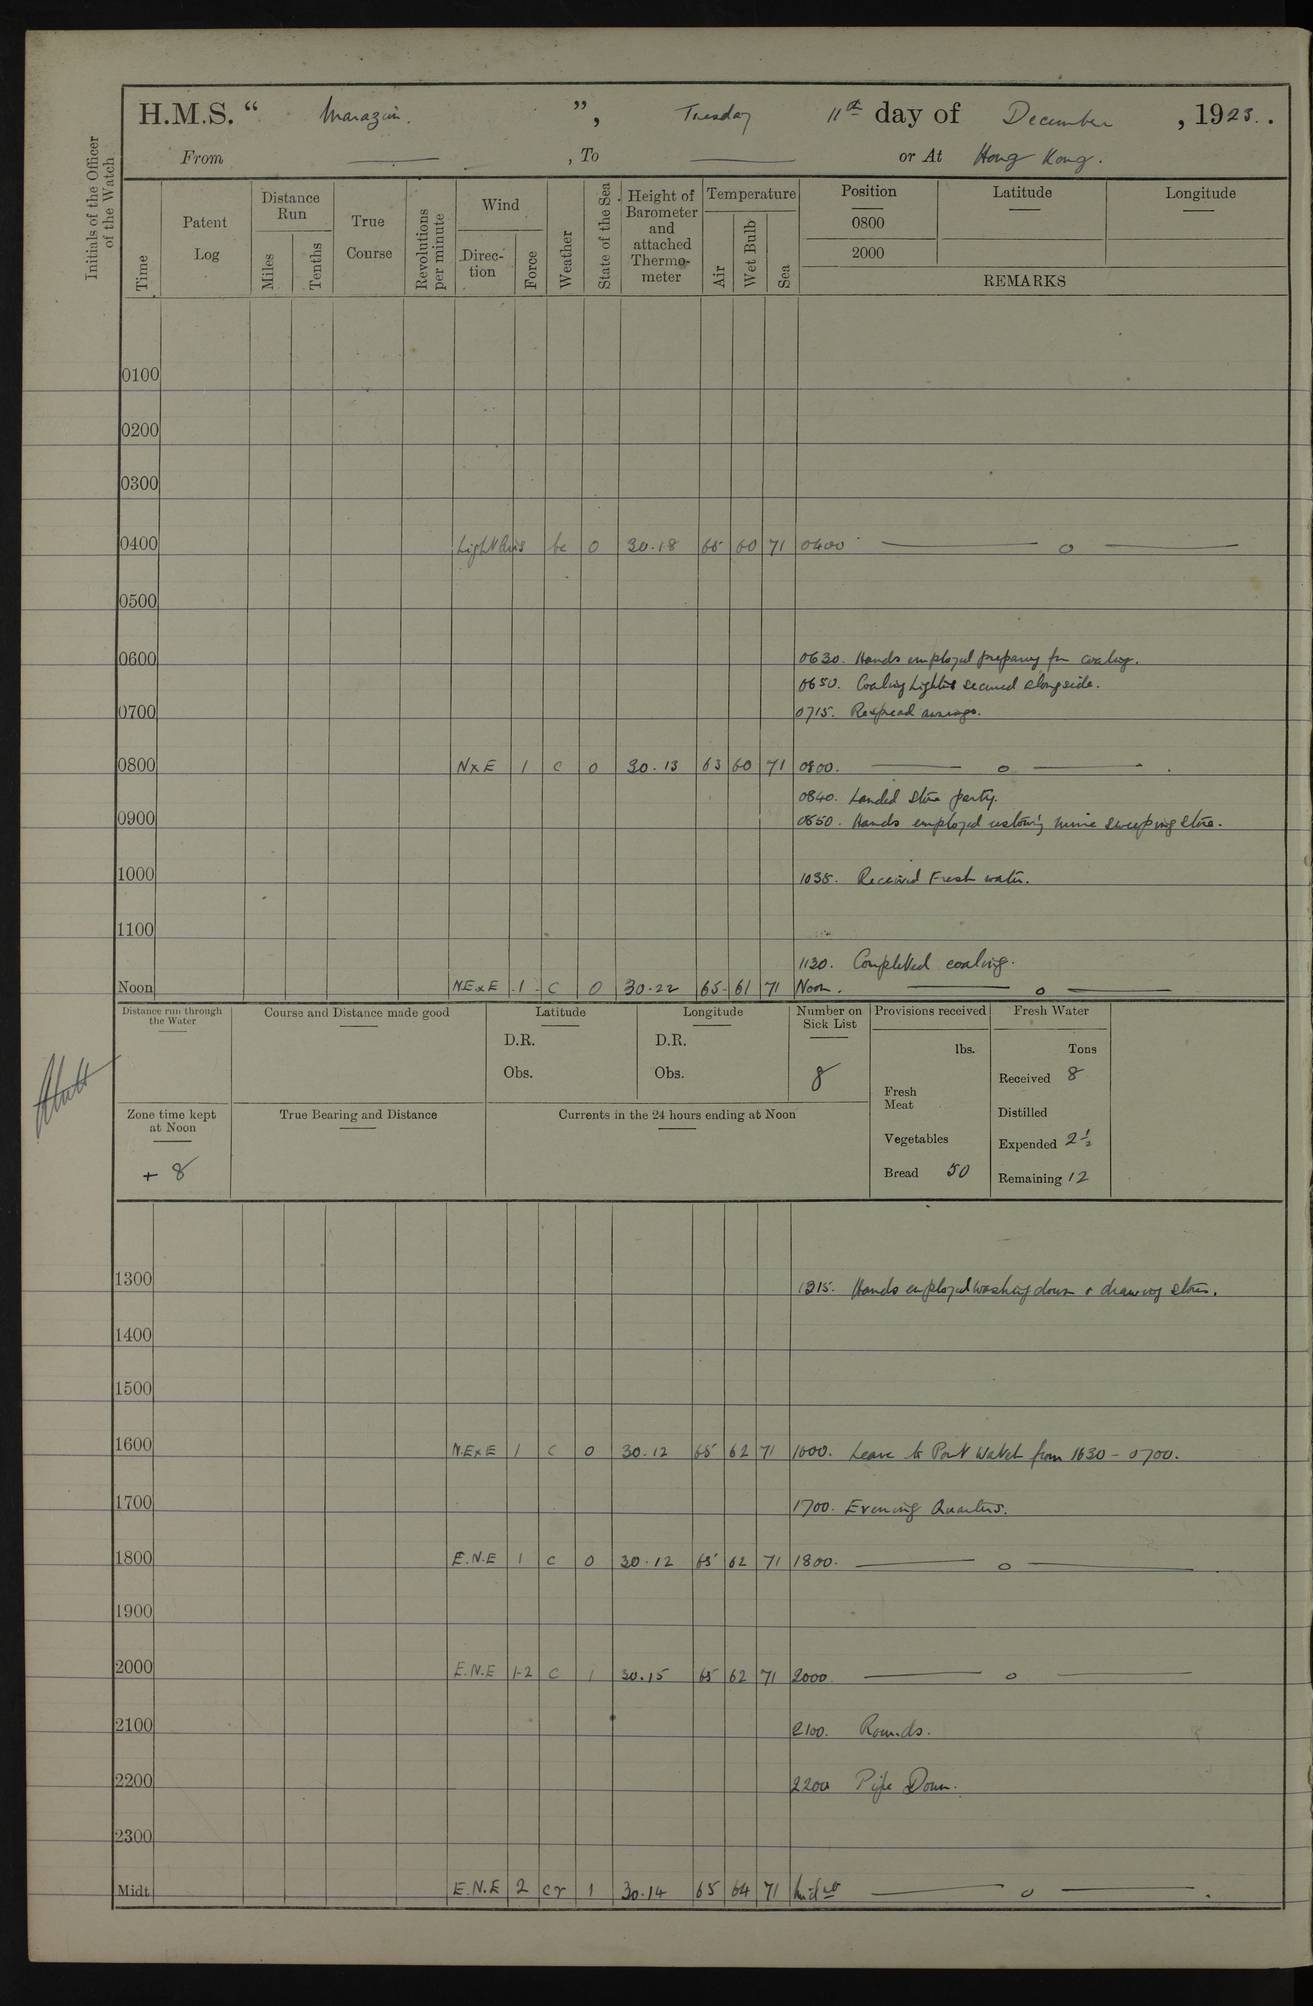 H.M.S. “ Marazion. ”, Tuesday 11th day of December, 1923.
From — , To — or At Hong Kong.
Initials of the Officer of the Watch
Time
Patent Log
Distance Run
Miles
Tenths
True Course
Revolutions per minute
Wind
Direction
Force
Weather
State of the Sea
Height of Barometer and attached Thermometer
Temperature
Air
Wet Bulb
Sea
Position
Latitude
Longitude
0800
2000
REMARKS
0100
0200
0300
0400 Light Airs bc 0 30.18 65 60 71 0400 — o —
0500
0600 0630. Hands employed preparing for coaling.
0650. Coaling Lighter secured alongside.
0700 0715. Respread awnings.
0800 NxE 1 c 0 30.13 63 60 71 0800. — o —
0840. Landed store party.
0900 0850. Hands employed restowing mine sweeping store.
1000 1035. Received Fresh water.
1100
1130. Completed coaling.
Noon NExE 1 c 0 30.22 65 61 71 Noon. — o —
Distance run through the Water
Course and Distance made good
Latitude
D.R.
Obs.
Longitude
D.R.
Obs.
Number on Sick List
8
Provisions received
lbs.
Fresh Meat
Vegetables
Bread 50
Fresh Water
Tons
Received 8
Distilled
Expended 2½
Remaining 12
Zone time kept at Noon
+ 8
True Bearing and Distance
Currents in the 24 hours ending at Noon
1300 1315. Hands employed washing down & drawing stores.
1400
1500
1600 N.ExE 1 c 0 30.12 65 62 71 1600. Leave to Port Watch from 1630 - 0700.
1700 1700. Evening Quarters.
1800 E.N.E 1 c 0 30.12 65 62 71 1800. — o —
1900
2000 E.N.E 1-2 c 1 30.15 65 62 71 2000 — o —
2100 2100. Rounds.
2200 2200 Pipe Down.
2300
Midt. E.N.E 2 cr 1 30.14 65 64 71 Mid — o —